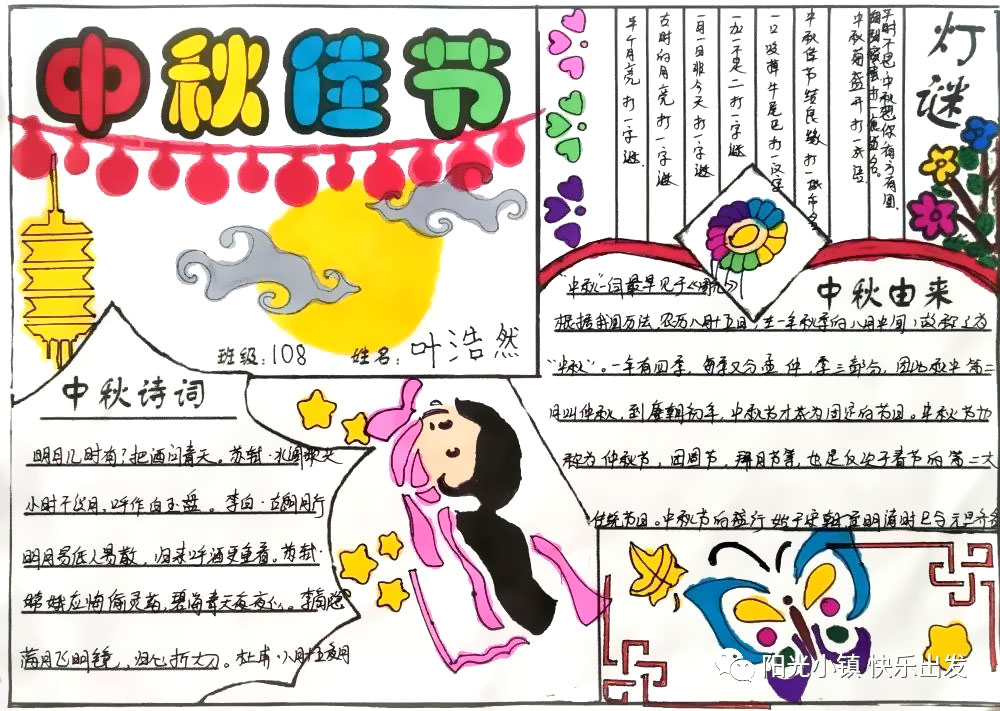 中秋佳节
班级:108 姓名:叶浩然
灯谜
中秋菊盛开 打一成语
中秋佳节结良缘 打一城市名
一口咬掉牛尾巴 打一汉字
一加一不是二 打一字谜
一月一日非今天 打一字谜
古时的月亮 打一字谜
半个月亮 打一字谜
中秋由来
“中秋”一词最早见于《周礼》
根据我国历法,农历八月十五日,在一年秋季的八月中间,故称之为
“中秋”。一年有四季,每季又分孟、仲、季三部分,因此秋中第二
月叫仲秋,到唐朝初年,中秋节才成为固定的节日。中秋节也
称为仲秋节,团圆节,拜月节等,也是仅次于春节的第二大
传统节日。中秋节的盛行始于宋朝,至明清时已与元旦齐名
中秋诗词
明月几时有?把酒问青天。苏轼·水调歌头
小时不识月,呼作白玉盘。李白·古朗月行
明月易低人易散,归来呼酒更重看。苏轼·
嫦娥应悔偷灵药,碧海青天夜夜心。李商隐
满月飞明镜,归心折大刀。杜甫·八月十五夜月
阳光小镇 快乐出发